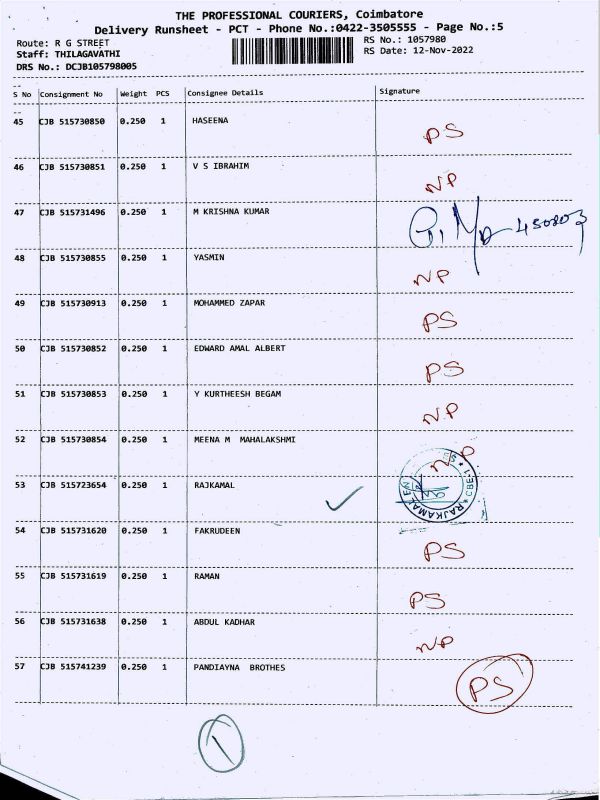 THE PROFESSIONAL COURIERS, Coimbatore
Delivery Runsheet - PCT - Phone No.:0422-3505555 - Page No.:5
Route: R G STREET
RS No.: 1057980
Staff: THILAGAVATHI
RS Date: 12-Nov-2022
DRS No.: DCJB105798005
S No Consignment No Weight PCS Consignee Details Signature
45 CJB 515730850 0.250 1 HASEENA PS
46 CJB 515730851 0.250 1 V S IBRAHIM NP
47 CJB 515731496 0.250 1 M KRISHNA KUMAR
48 CJB 515730855 0.250 1 YASMIN NP
49 CJB 515730913 0.250 1 MOHAMMED ZAPAR PS
50 CJB 515730852 0.250 1 EDWARD AMAL ALBERT PS
51 CJB 515730853 0.250 1 Y KURTHEESH BEGAM NP
52 CJB 515730854 0.250 1 MEENA M MAHALAKSHMI NP
53 CJB 515723654 0.250 1 RAJKAMAL
54 CJB 515731620 0.250 1 FAKRUDEEN PS
55 CJB 515731619 0.250 1 RAMAN PS
56 CJB 515731638 0.250 1 ABDUL KADHAR NP
57 CJB 515741239 0.250 1 PANDIAYNA BROTHES PS
1